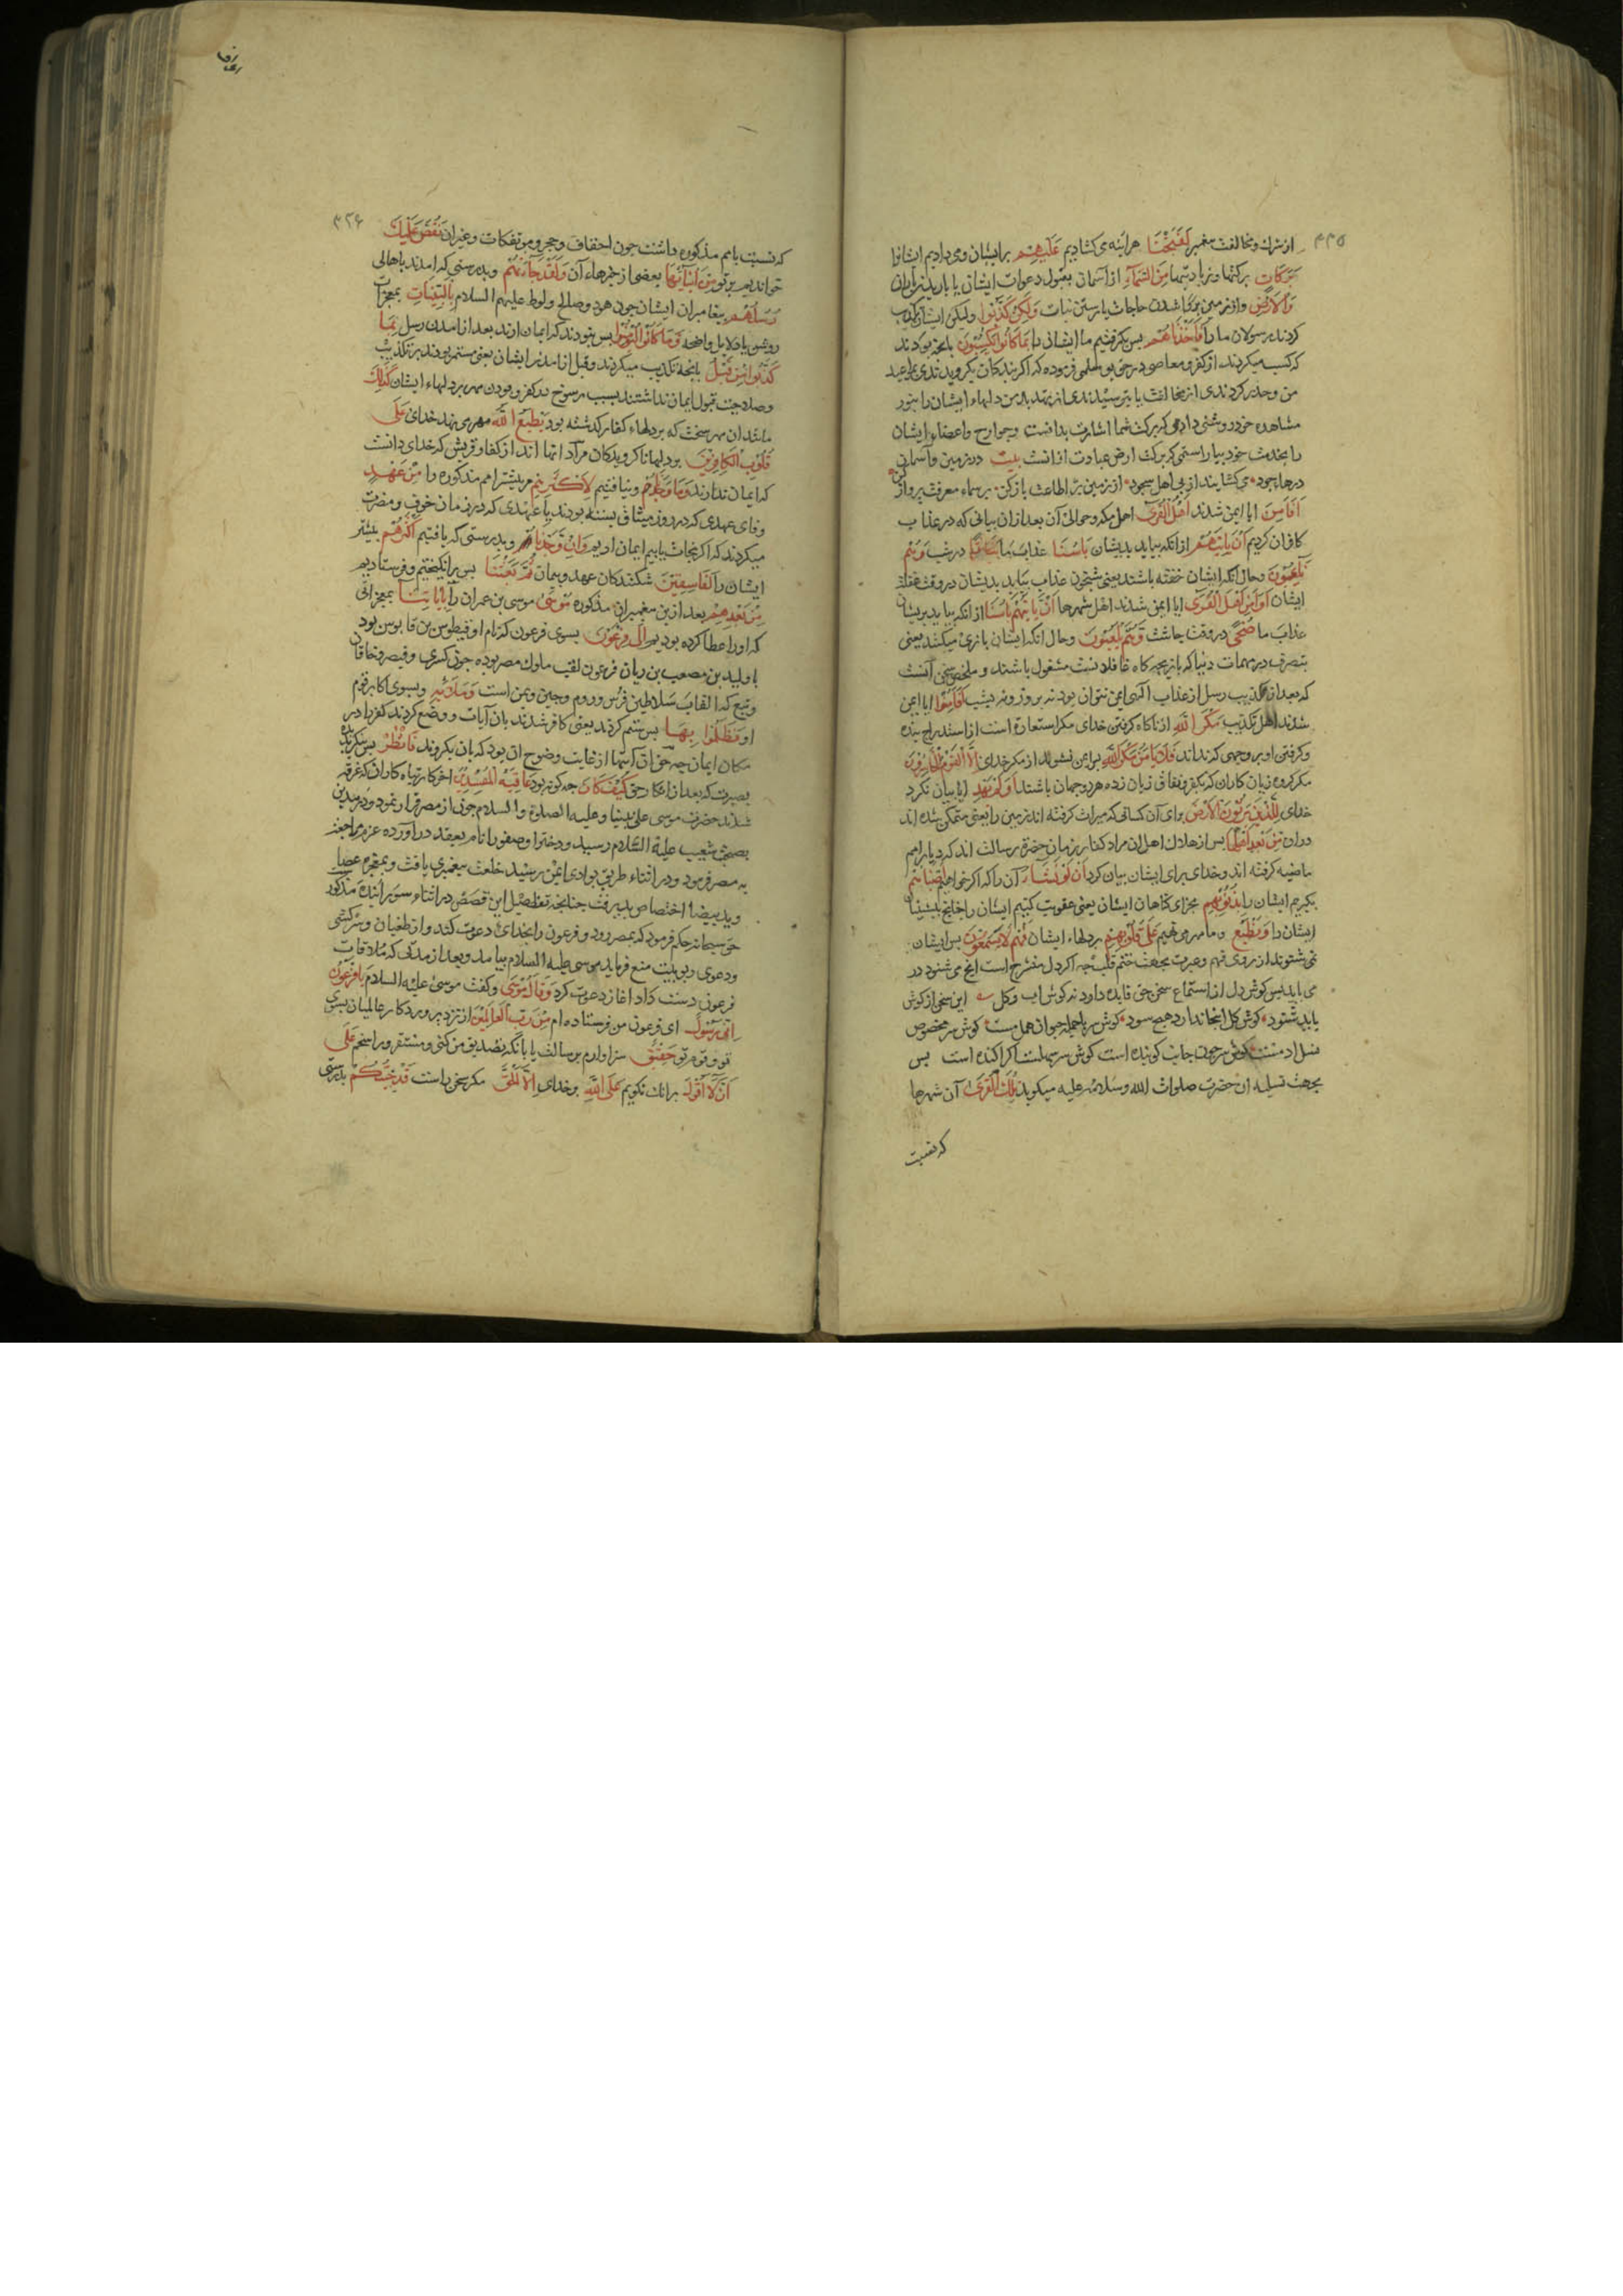 ۳۳۵
از شرك و مخالفت پیغمبر لَفَتَحْنَا هرآینه می کشادیم عَلَيْهِمْ بر ایشان و می دادیم ایشانرا
بَرَكَاتٍ برکتها و زیادتیها مِنَ السَّمَآءِ از آسمان بقبول دعوات ایشان یا باریدن باران
وَالْاَرْضِ و از زمین بروا شدن حاجات یا رستن نبات وَلٰكِنْ كَذَّبُوا ولیکن ایشان تکذیب
کردند رسولان ما را فَاَخَذْنَاهُمْ پس بگرفتیم ما ایشان را بِمَا كَانُوا يَكْسِبُونَ بانچه بودند
که کسب میکردند از کفر و معاصی
من و حذر کردندی از مخالفت یا بترسیدندی از تهدید من دلهاء ایشان را بنور
مشاهده خود روشنی دادمی که برکت سما اشارت بدانست و جوارح و اعضاء ایشان
را بخدمت خود بیاراستمی که برکت ارض عبادت ازانست بیت در زمین و آسمان
درهاء جود می کشایند از پی اهل سجود از زمین بر اطاعت باز کن بر سماء معرفت پرواز کن
اَفَاَمِنَ ایا ایمن شدند اَهْلُ الْقُرٰی اهل مکه و حوالی آن بعد ازان بیانی که در عذاب
کافران کردیم اَنْ يَاْتِيَهُمْ ازانکه بیاید بدیشان بَاْسُنَا عذاب ما بَيَاتًا در شب وَهُمْ
نَآئِمُونَ و حال آنکه ایشان خفته باشند یعنی شبخون عذاب بیاید بدیشان در وقت غفلت
ایشان اَوَاَمِنَ اَهْلُ الْقُرٰی ایا ایمن شدند اهل شهرها اَنْ يَاْتِيَهُمْ بَاْسُنَا ازانکه بیاید بریشان
عذاب ما ضُحًی در وقت چاشت وَهُمْ يَلْعَبُونَ و حال آنکه ایشان بازی میکنند یعنی
بتصرف در مهمات دنیا که بازیچه کاه غافلانست مشغول باشند و ملخص سخن آنست
که بعد از تکذیب رسل از عذاب الهی ایمن نتوان بود نه بروز و نه بشب اَفَاَمِنُوا ایا ایمن
شدند اهل تکذیب مَكْرَ اللّٰهِ از ناکاه کرفتن خدای مکر استعاره است از استدراج بنده
و کرفتن او بر وجهی که نداند فَلَا يَاْمَنُ مَكْرَ اللّٰهِ پس ایمن نشوند از مکر خدای اِلَّا الْقَوْمُ الْخَاسِرُونَ
مکر کروه زیان کاران که بکفر و نفاق زیان زده هر دو جهان باشند اَوَلَمْ يَهْدِ ایا بیان نکرد
خدای لِلَّذِينَ يَرِثُونَ الْاَرْضَ برای آن کسانی که میراث کرفته اند زمین را یعنی متمکن شده اند
دران مِنْ بَعْدِ اَهْلِهَا پس از هلاك اهل ان مراد کفار زمان حضرت رسالت اند که دیار امم
ماضیه کرفته اند و خدای برای ایشان بیان کرد اَنْ لَوْ نَشَآءُ آن را که اکر خواهیم اَصَبْنَاهُمْ
بگیریم ایشان را بِذُنُوبِهِمْ بجزای کناهان ایشان یعنی عقوبت کنیم ایشان را چنانچه پیشینیان
ایشان را وَنَطْبَعُ و ما مهر می نهیم عَلٰی قُلُوبِهِمْ بر دلهاء ایشان فَهُمْ لَا يَسْمَعُونَ پس ایشان
نمی شنوند از روی فهم و عبرت بجهت ختم قلب چه اکر دل منشرح است انچه می شنود در
می یابد پس کوش دل از استماع سخن حق فایده دارد نه کوش اب و کل این سخن از کوش
باید شنود کوش کل اینجا ندارد هیچ سود کوش سر با جمله حیوان همدمست کوش سر مخصوص
نسل ادمست کوش سر چون جانب کوینده است کوش سر سهلست اکر اکنده است پس
بجهت تسلیه ان حضرت صلوات الله و سلامه علیه میکوید تِلْكَ الْقُرٰی آن شهرها
که نسبت
۳۳۶
که نسبت بامم مذکوره داشت چون احقاف و حجر و موتفکات و غیران نَقُصُّ عَلَيْكَ
خواندیم بر تو مِنْ اَنْبَآئِهَا بعضی از خبرهاء آن وَلَقَدْ جَآءَتْهُمْ و بدرستی که امدند باهالی
رُسُلُهُمْ پیغامبران ایشان چون هود و صالح و لوط علیهم السلام بِالْبَيِّنَاتِ بمعجزات
روشن یا دلایل واضحه فَمَا كَانُوا لِيُؤْمِنُوا پس نبودند که ایمان ارند بعد از امدن رسل بِمَا
كَذَّبُوا مِنْ قَبْلُ بانچه تکذیب میکردند و قبل از امدن ایشان یعنی مستمر بودند بر تکذیب
و صلاحیت قبول ایمان نداشتند بسبب رسوخ در کفر و بودن مهر بر دلهاء ایشان كَذٰلِكَ
مانند ان مهر سخت که بر دلهاء کفار کذشته بود يَطْبَعُ اللّٰهُ مهر می نهد خدای عَلٰی
قُلُوبِ الْكَافِرِينَ بر دلهاء ناکرویدکان مراد انها اند از کفار قریش که خدای دانست
که ایمان ندارند وَمَا وَجَدْنَا و نیافتیم لِاَكْثَرِهِمْ مر بیشتر امم مذکوره را مِنْ عَهْدٍ
وفای عهدی که در روز میثاق بسته بودند یا عهدی که در زمان خوف و مضرت
میکردند که اکر نجات یابیم ایمان اریم وَاِنْ وَجَدْنَا و بدرستی که یافتیم اَكْثَرَهُمْ بیشتر
ایشان را لَفَاسِقِينَ شکنندکان عهد و پیمان ثُمَّ بَعَثْنَا پس برانکیختیم و فرستادیم
مِنْ بَعْدِهِمْ بعد از بن پیغمبران مذکوره مُوسٰی موسی بن عمران را بِاٰيَاتِنَا بمعجزاتی
که اورا عطا کرده بودیم اِلٰی فِرْعَوْنَ بسوی فرعون که نام او قبطوس بن قابوس بود
یا ولید بن مصعب بن ریان فرعون لقب ملوك مصر بوده چون کسری و قیصر و خاقان
و تبع که القاب سلاطین فرس و روم و چین و یمن است وَمَلَائِهِ و بسوی اکابر قوم
او فَظَلَمُوا بِهَا پس ستم کردند یعنی کافر شدند بان آیات و وضع کردند کفر را در
مکان ایمان چه حق آن آیتها از غایت وضوح ان بود که بان بکروند فَانْظُرْ پس بنکر بدیده
بصیرت که بعد از انکار حق كَيْفَ كَانَ چه کونه بود عَاقِبَةُ الْمُفْسِدِينَ اخر کار تباه کاران که غرقه
شدند حضرت موسی علی نبینا و علیه الصلوة والسلام چون از مصر فرار نمود و در مدین
بصحبت شعیب علیه السلام رسید و دختر او صفورا نام بعقد در آورده عزم مراجعت
به مصر فرمود و در اثناء طریق بوادی ایمن رسید خلعت پیغمبری یافت و بمعجزه عصا
و ید بیضا اختصاص پذیرفت چنانچه تفصیل این قصص در اثناء سور آینده مذکور
حق سبحانه حکم فرمود که بمصر رود و فرعون را بخدای دعوت کند و از طغیان و سرکشی
و دعوی ربوبیت منع فرماید موسی علیه السلام بیامد و بعد از مدتی که ملاقات
فرعون دست داد اغاز دعوت کرد وَقَالَ مُوسٰی و کفت موسی علیه السلام يَا فِرْعَوْنُ
اِنِّی رَسُولٌ ای فرعون من فرستاده ام مِنْ رَبِّ الْعَالَمِينَ از نزد پروردکار عالمیان بسوی
تو و قوم تو حَقِيقٌ سزاوارم برسالت یا بانکه تصدیق من کنی و مستقر و راسخم عَلٰی
اَنْ لَا اَقُولَ برانك نکویم عَلَی اللّٰهِ بر خدای اِلَّا الْحَقَّ مکر سخن راست قَدْ جِئْتُكُمْ بدرستی